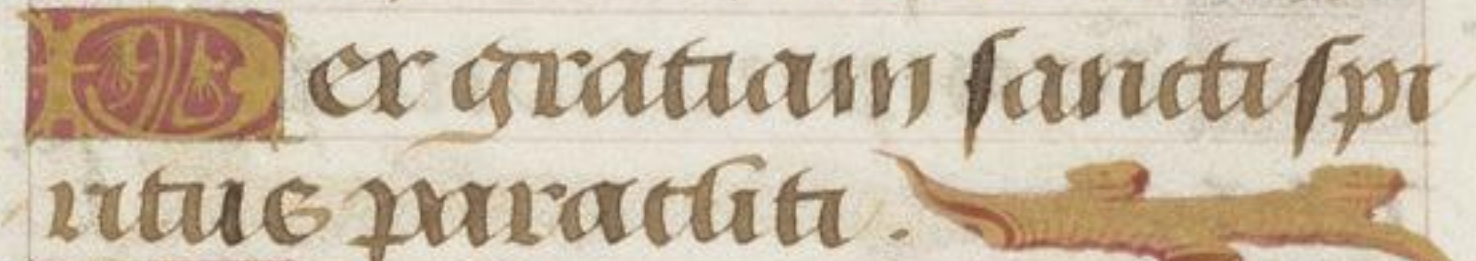 Per gratiam sancti spi
ritus paracliti.